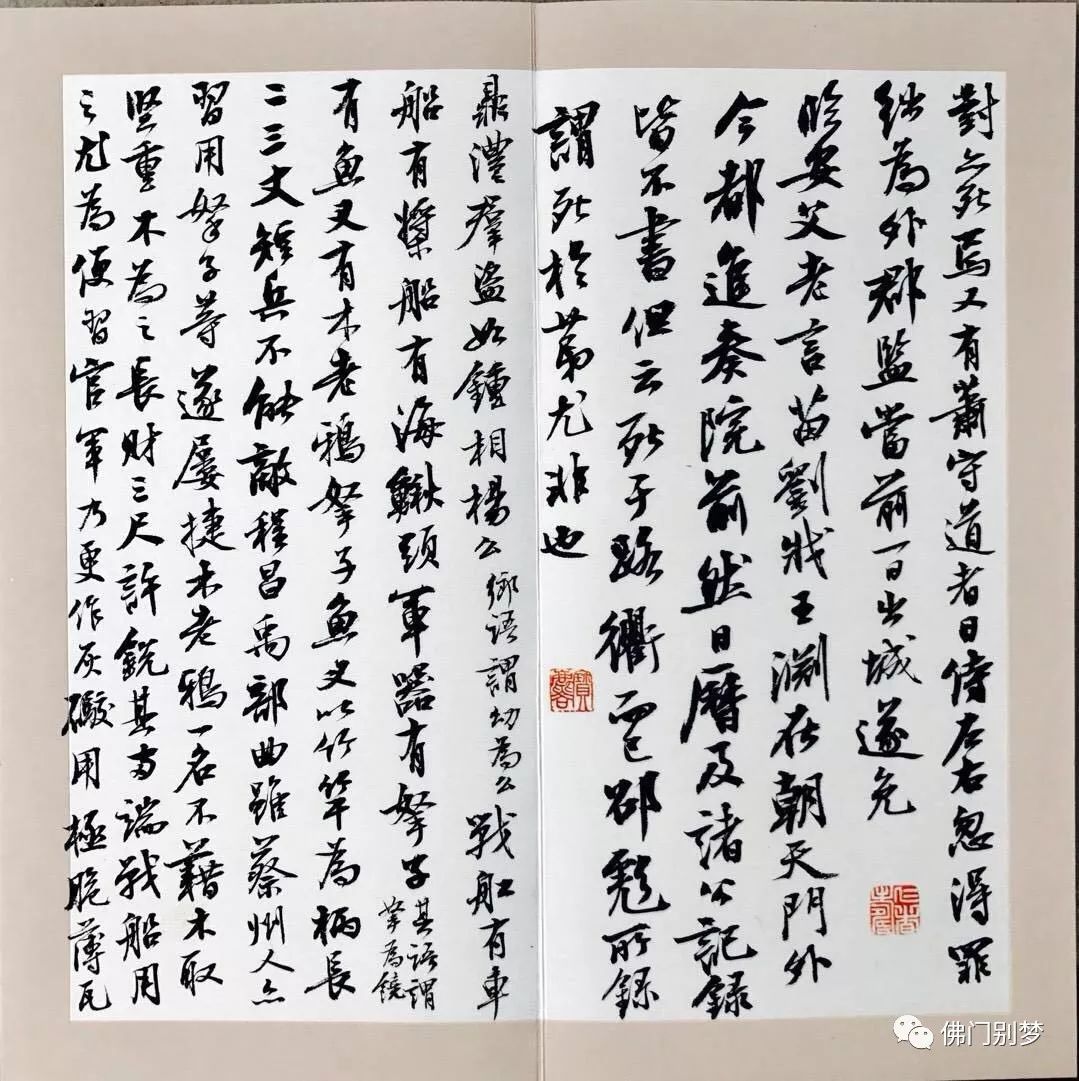 對亦死焉又有蕭守道者日侍左右忽得罪
絀為外郡監當前一日出城遂免
臨安父老言苗劉戕王淵在朝天門外
今都進奏院前然日曆及諸公記録
皆不書但云死于路衢而已邵彪所録
謂死於第尤非也
鼎澧羣盜如鍾相楊么鄉語謂幼為么戰舡有車
船有槳船有海鰍頭軍器有拏子其語謂拏為鐃
有魚叉有木老鴉拏子魚叉以竹竿為柄長
二三丈短兵不能敵程昌禹部曲雖蔡州人亦
習用拏子等遂屢捷木老鴉一名不藉木取
堅重木為之長財三尺許銳其兩端戰船用
之尤為便習官軍乃更作灰礮用極脆薄瓦
佛门别梦